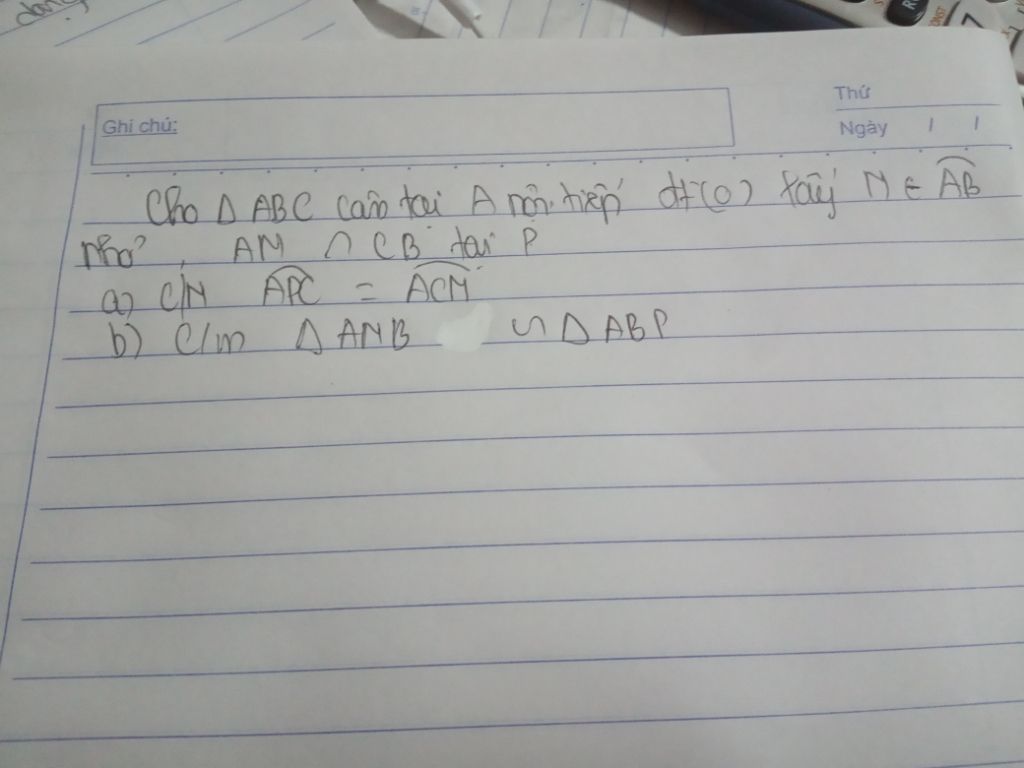 Ghi chú:
Thứ
Ngày / /
Cho Δ ABC cân tại A nội tiếp đt(O) lấy M ∈ AB
nhỏ, AM ∩ CB tại P
a) C/M APC = ACM
b) C/m Δ AMB ∽ Δ ABP